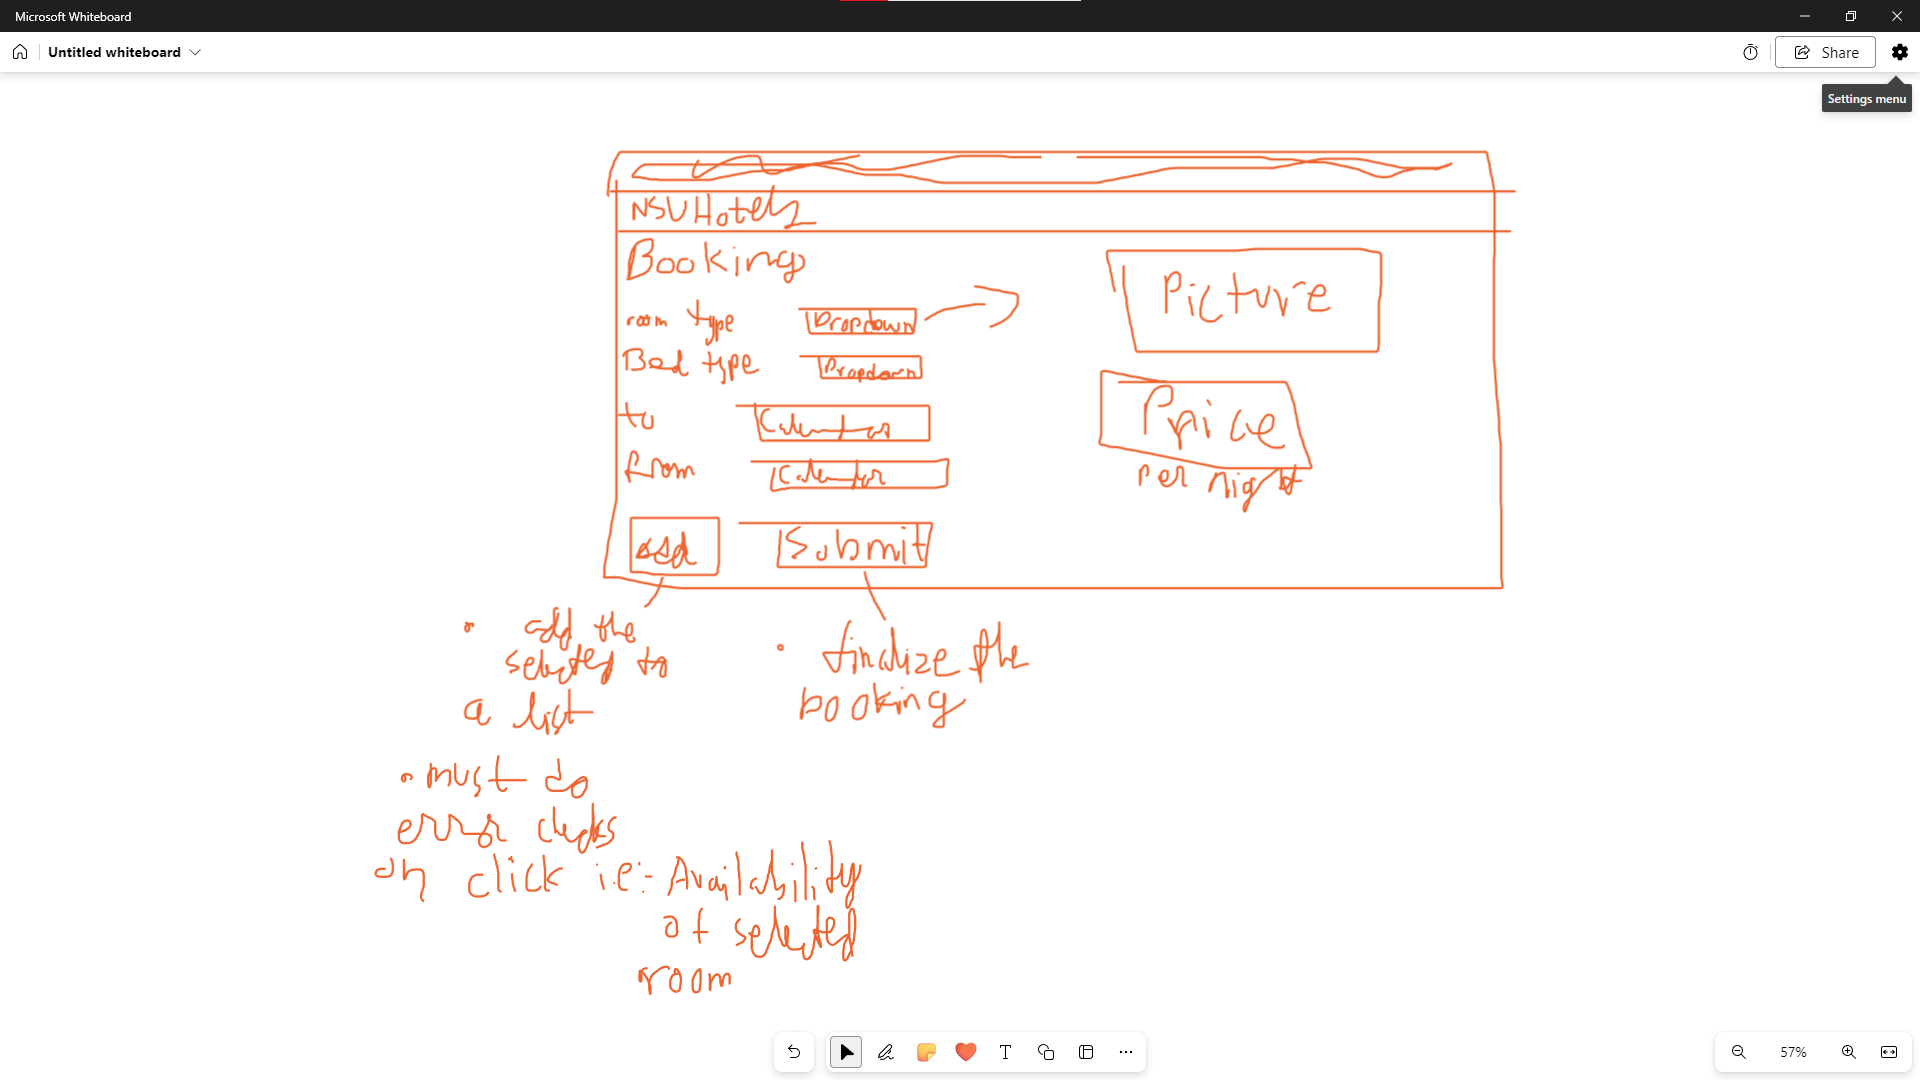 Microsoft Whiteboard
Untitled whiteboard
Share
Settings menu
NSU Hotels
Booking
room type Dropdown
Bed type Dropdown
to Calendar
from Calendar
add Submit
Picture
Price
per night
• add the
selected to
a list
• finalize the
booking
• must do
error checks
on click i.e:- Availability
of selected
room
57%